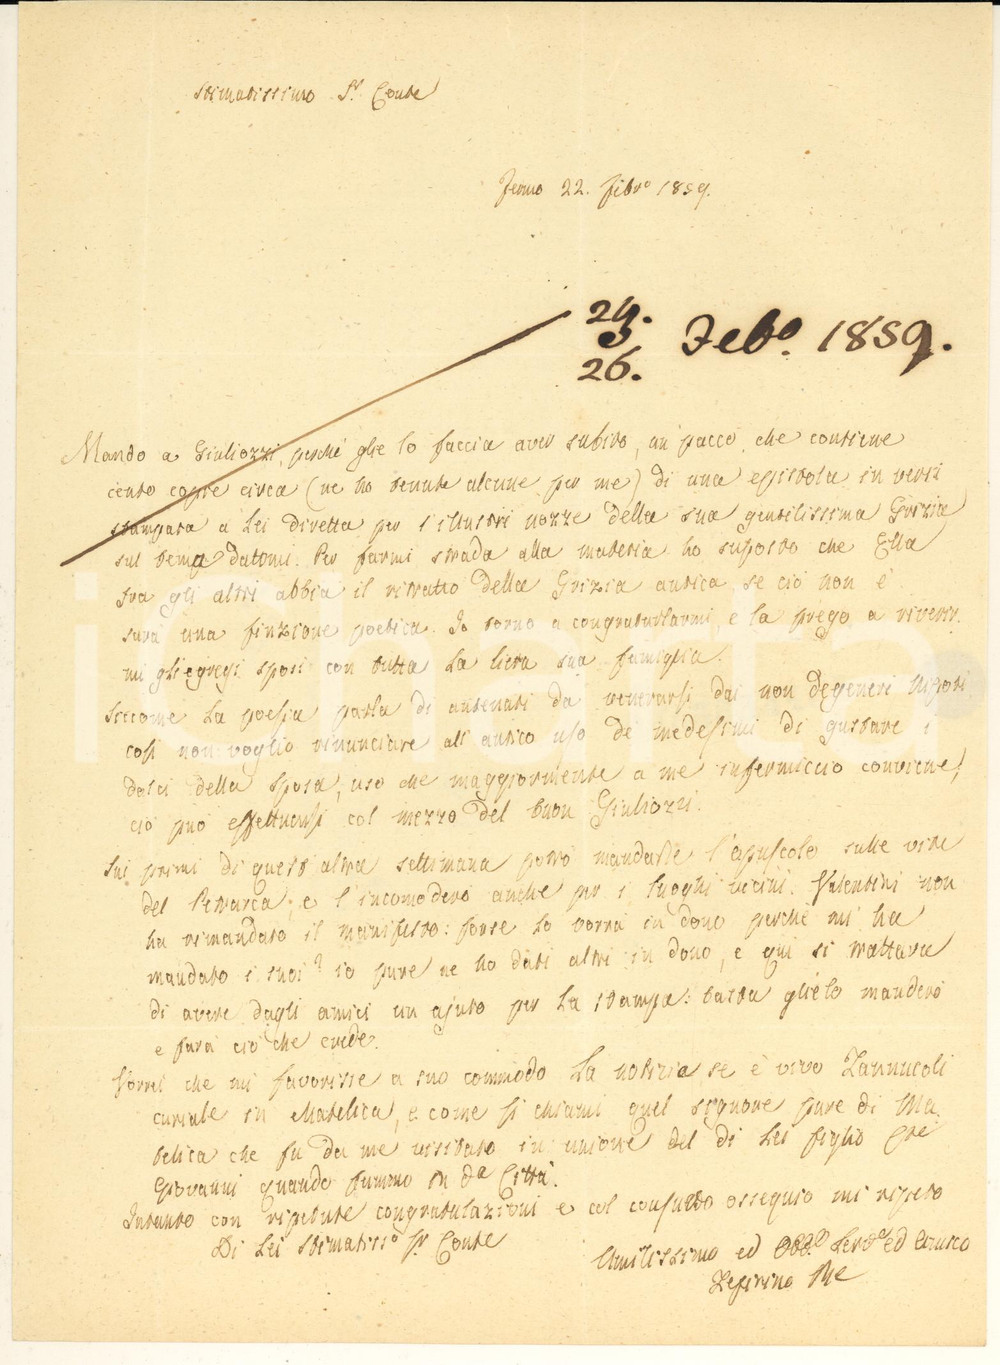 Stimatissimo Sr. Conte
Fermo 22. Febro 1859.
24. Febo. 1859.
26.
Mando a Giuliozzi, perché glie lo faccia aver subito, un pacco che contiene
cento copie circa (ne ho tenute alcune per me) di una epistola in versi
stampata a Lei diretta per l'illustri nozze della sua gentilissima Grizia
sul tema datomi. Per farmi strada alla materia ho supposto che Ella
fra gli altri abbia il ritratto della Grizia antica, se ciò non è
sarà una finzione poetica. Io torno a congratularmi, e la prego a riverir
mi gli egregi sposi con tutta la lieta sua famiglia.
Siccome la poesia parla di antenati da venerarsi dai non degeneri nipoti
così non voglio rinunciare all'antico uso de' medesimi di gustare i
dolci della sposa, uso che maggiormente a me infermiccio conviene;
ciò può effettuarsi col mezzo del buon Giuliozzi.
Sui primi di quest'altra settimana potrò mandarle l'opuscolo sulle vite
del Petrarca, e l'incomoderò anche per i luoghi vicini. Valentini non
ha rimandato il manifesto: forse lo vorrà in dono perché mi ha
mandato i suoi? io pure ne ho dati altri in dono, e qui si trattava
di avere dagli amici un ajuto per la stampa: basta glielo manderò
e farà ciò che crede.
Vorrei che mi favorisse a suo commodo la notizia se è vivo Zannucoli
curiale in Matelica, e come si chiami quel signore pure di Ma
telica che fu da me visitato in unione del di Lei figlio Cte
Giovanni quando fummo in da Città.
Intanto con ripetute congratulazioni e col consueto ossequio mi ripeto
Di Lei Stimatisso Sr. Conte
Umilissimo ed Obbo Servo ed Amico
Zefirino Re